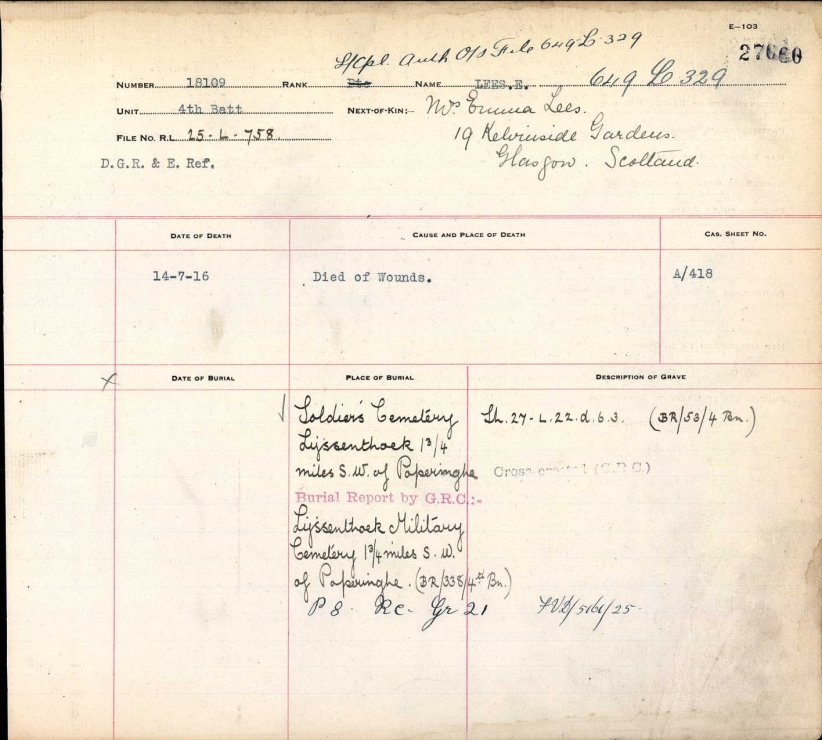 E—103
27660
L/Cpl. Auth O/S File 649-L-329
NUMBER 18109 RANK Pte NAME LEES, E. 649 L 329
UNIT 4th Batt NEXT-OF-KIN:- Mrs Emma Lees.
FILE NO. R.L. 25-L-758. 19 Kelvinside Gardens.
D.G.R. & E. Ref. Glasgow. Scotland.
DATE OF DEATH CAUSE AND PLACE OF DEATH CAS. SHEET NO.
14-7-16 Died of Wounds. A/418
X DATE OF BURIAL PLACE OF BURIAL DESCRIPTION OF GRAVE
Soldier's Cemetery Sh. 27-L.22.d.6.3. (BR/53/4 Bn.)
Lijssenthoek 1 3/4
miles S.W. of Poperinghe Cross erected (G.R.C.)
Burial Report by G.R.C.:-
Lijssenthoek Military
Cemetery 1 3/4 miles S.W.
of Poperinghe. (BR/338/4th Bn.)
P 8. R C- Gr 21